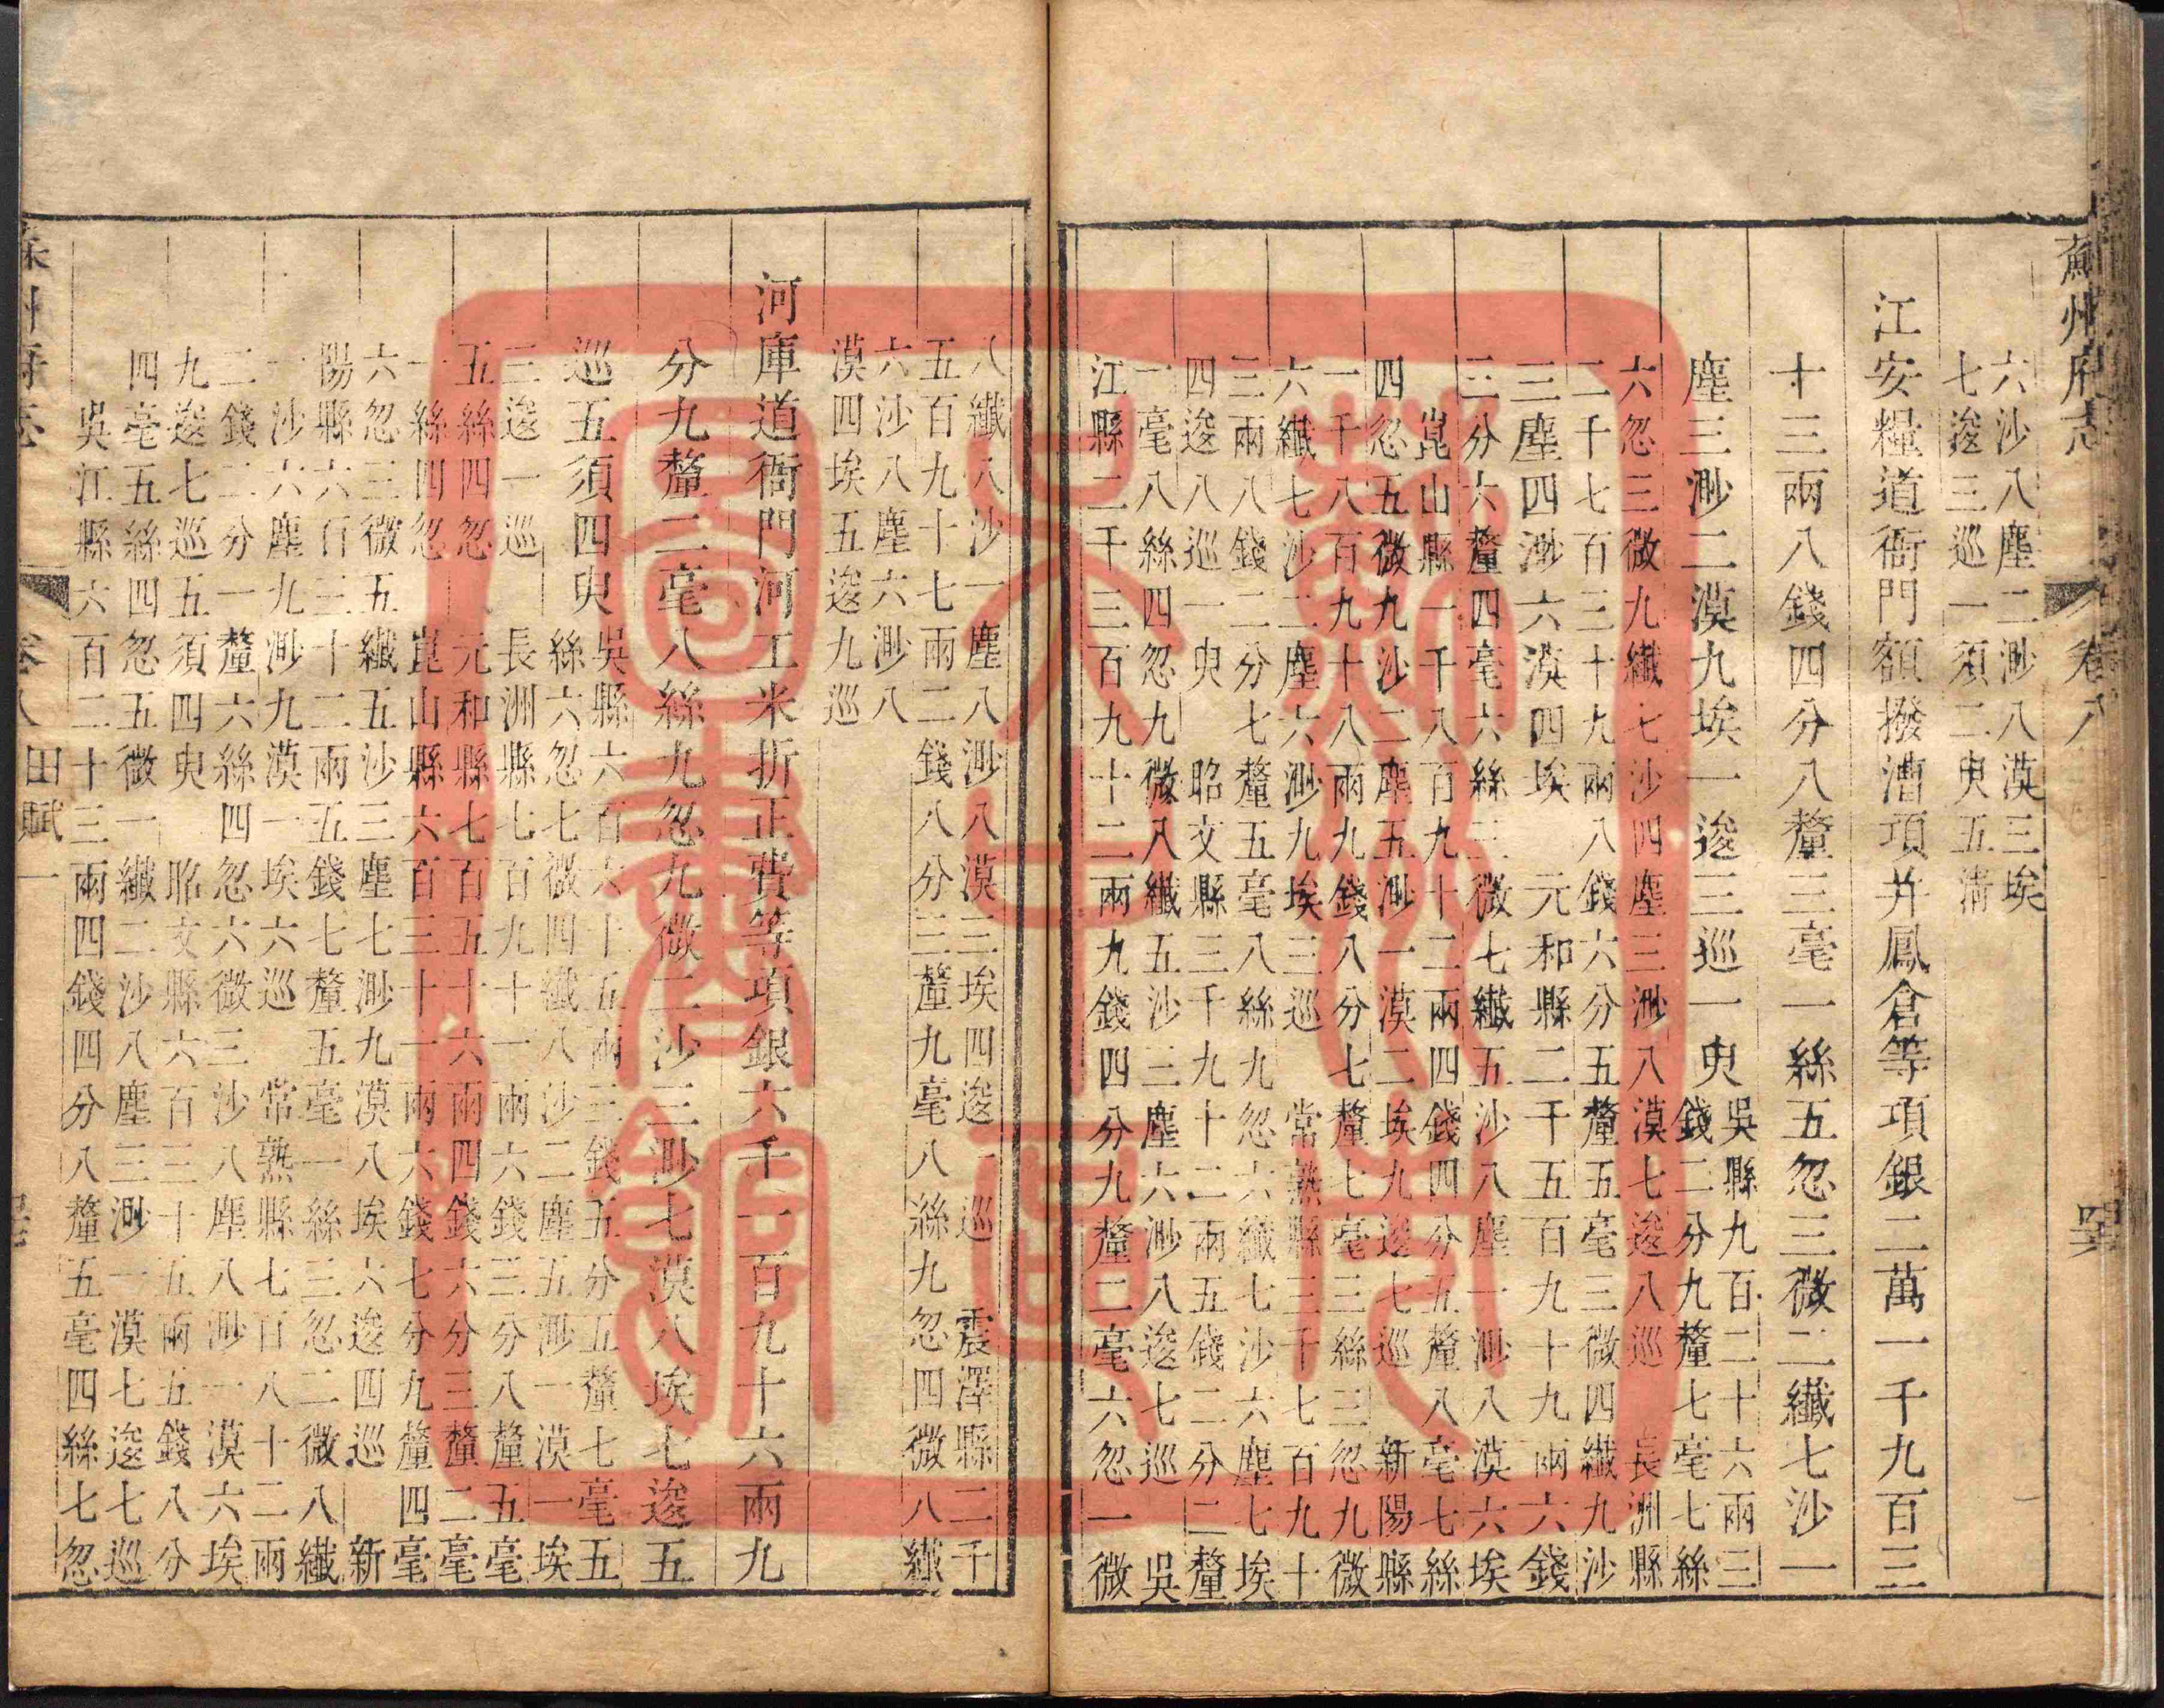 蘇州府志 卷八
六沙八塵二渺八漠三埃
七逡三巡一須二臾五清
江安糧道衙門額撥漕項幷鳳倉等項銀二萬一千九百三
十三兩八錢四分八釐三毫一絲五忽三微二纖七沙一
塵三渺二漠九埃一逡三巡一臾
吳縣九百二十六兩三
錢二分九釐七毫七絲
六忽三微九纖七沙四塵三渺八漠七逡八巡 長洲縣
二千七百三十九兩八錢六分五釐五毫三微四纖九沙
三塵四渺六漠四埃 元和縣二千五百九十九兩六錢
三分六釐四毫六絲三微七纖五沙八塵一渺八漠六埃
崑山縣一千八百九十二兩四錢四分五釐八毫七絲
四忽五微九沙二塵五渺一漠二埃九逡七巡 新陽縣
一千八百九十八兩九錢八分七釐七毫三絲三忽九微
六纖七沙二塵六渺九埃三巡 常熟縣三千七百九十
三兩八錢二分七釐五毫八絲九忽六纖七沙六塵七埃
四逡八巡一臾 昭文縣三千九十二兩五錢二分二釐
一毫八絲四忽九微八纖五沙三塵六渺八逡七巡 吳
江縣二千三百九十二兩九錢四分九釐二毫六忽一微
八纖八沙一塵八渺八漠三埃四逡一巡 震澤縣二千
五百九十七兩二錢八分三釐九毫八絲九忽四微八纖
六沙八塵六渺八
漠四埃五逡九巡
河庫道衙門河工米折正費等項銀六千一百九十六兩九
分九釐二毫八絲九忽九微二沙三渺七漠八埃七逡五
巡五須四臾
吳縣六百六十五兩三錢五分五釐七毫五
絲六忽七微四纖八沙二塵五渺一漠一埃
三逡一巡 長洲縣七百九十一兩六錢三分八釐五毫
五絲四忽 元和縣七百五十六兩四錢六分三釐二毫
一絲四忽 崑山縣六百三十一兩六錢七分九釐四毫
六忽三微五纖五沙三塵七渺九漠八埃六逡四巡 新
陽縣六百三十二兩五錢七釐五毫一絲三忽二微八纖
一沙六塵九渺九漠一埃六巡 常熟縣七百八十二兩
二錢二分一釐六絲四忽六微三沙八塵八渺一漠六埃
九逡七巡五須四臾 昭文縣六百三十五兩五錢八分
四毫五絲四忽五微一纖二沙八塵三渺一漠七逡七巡
吳江縣六百二十三兩四錢四分八釐五毫四絲七忽
蘇州府志 卷八 田賦一